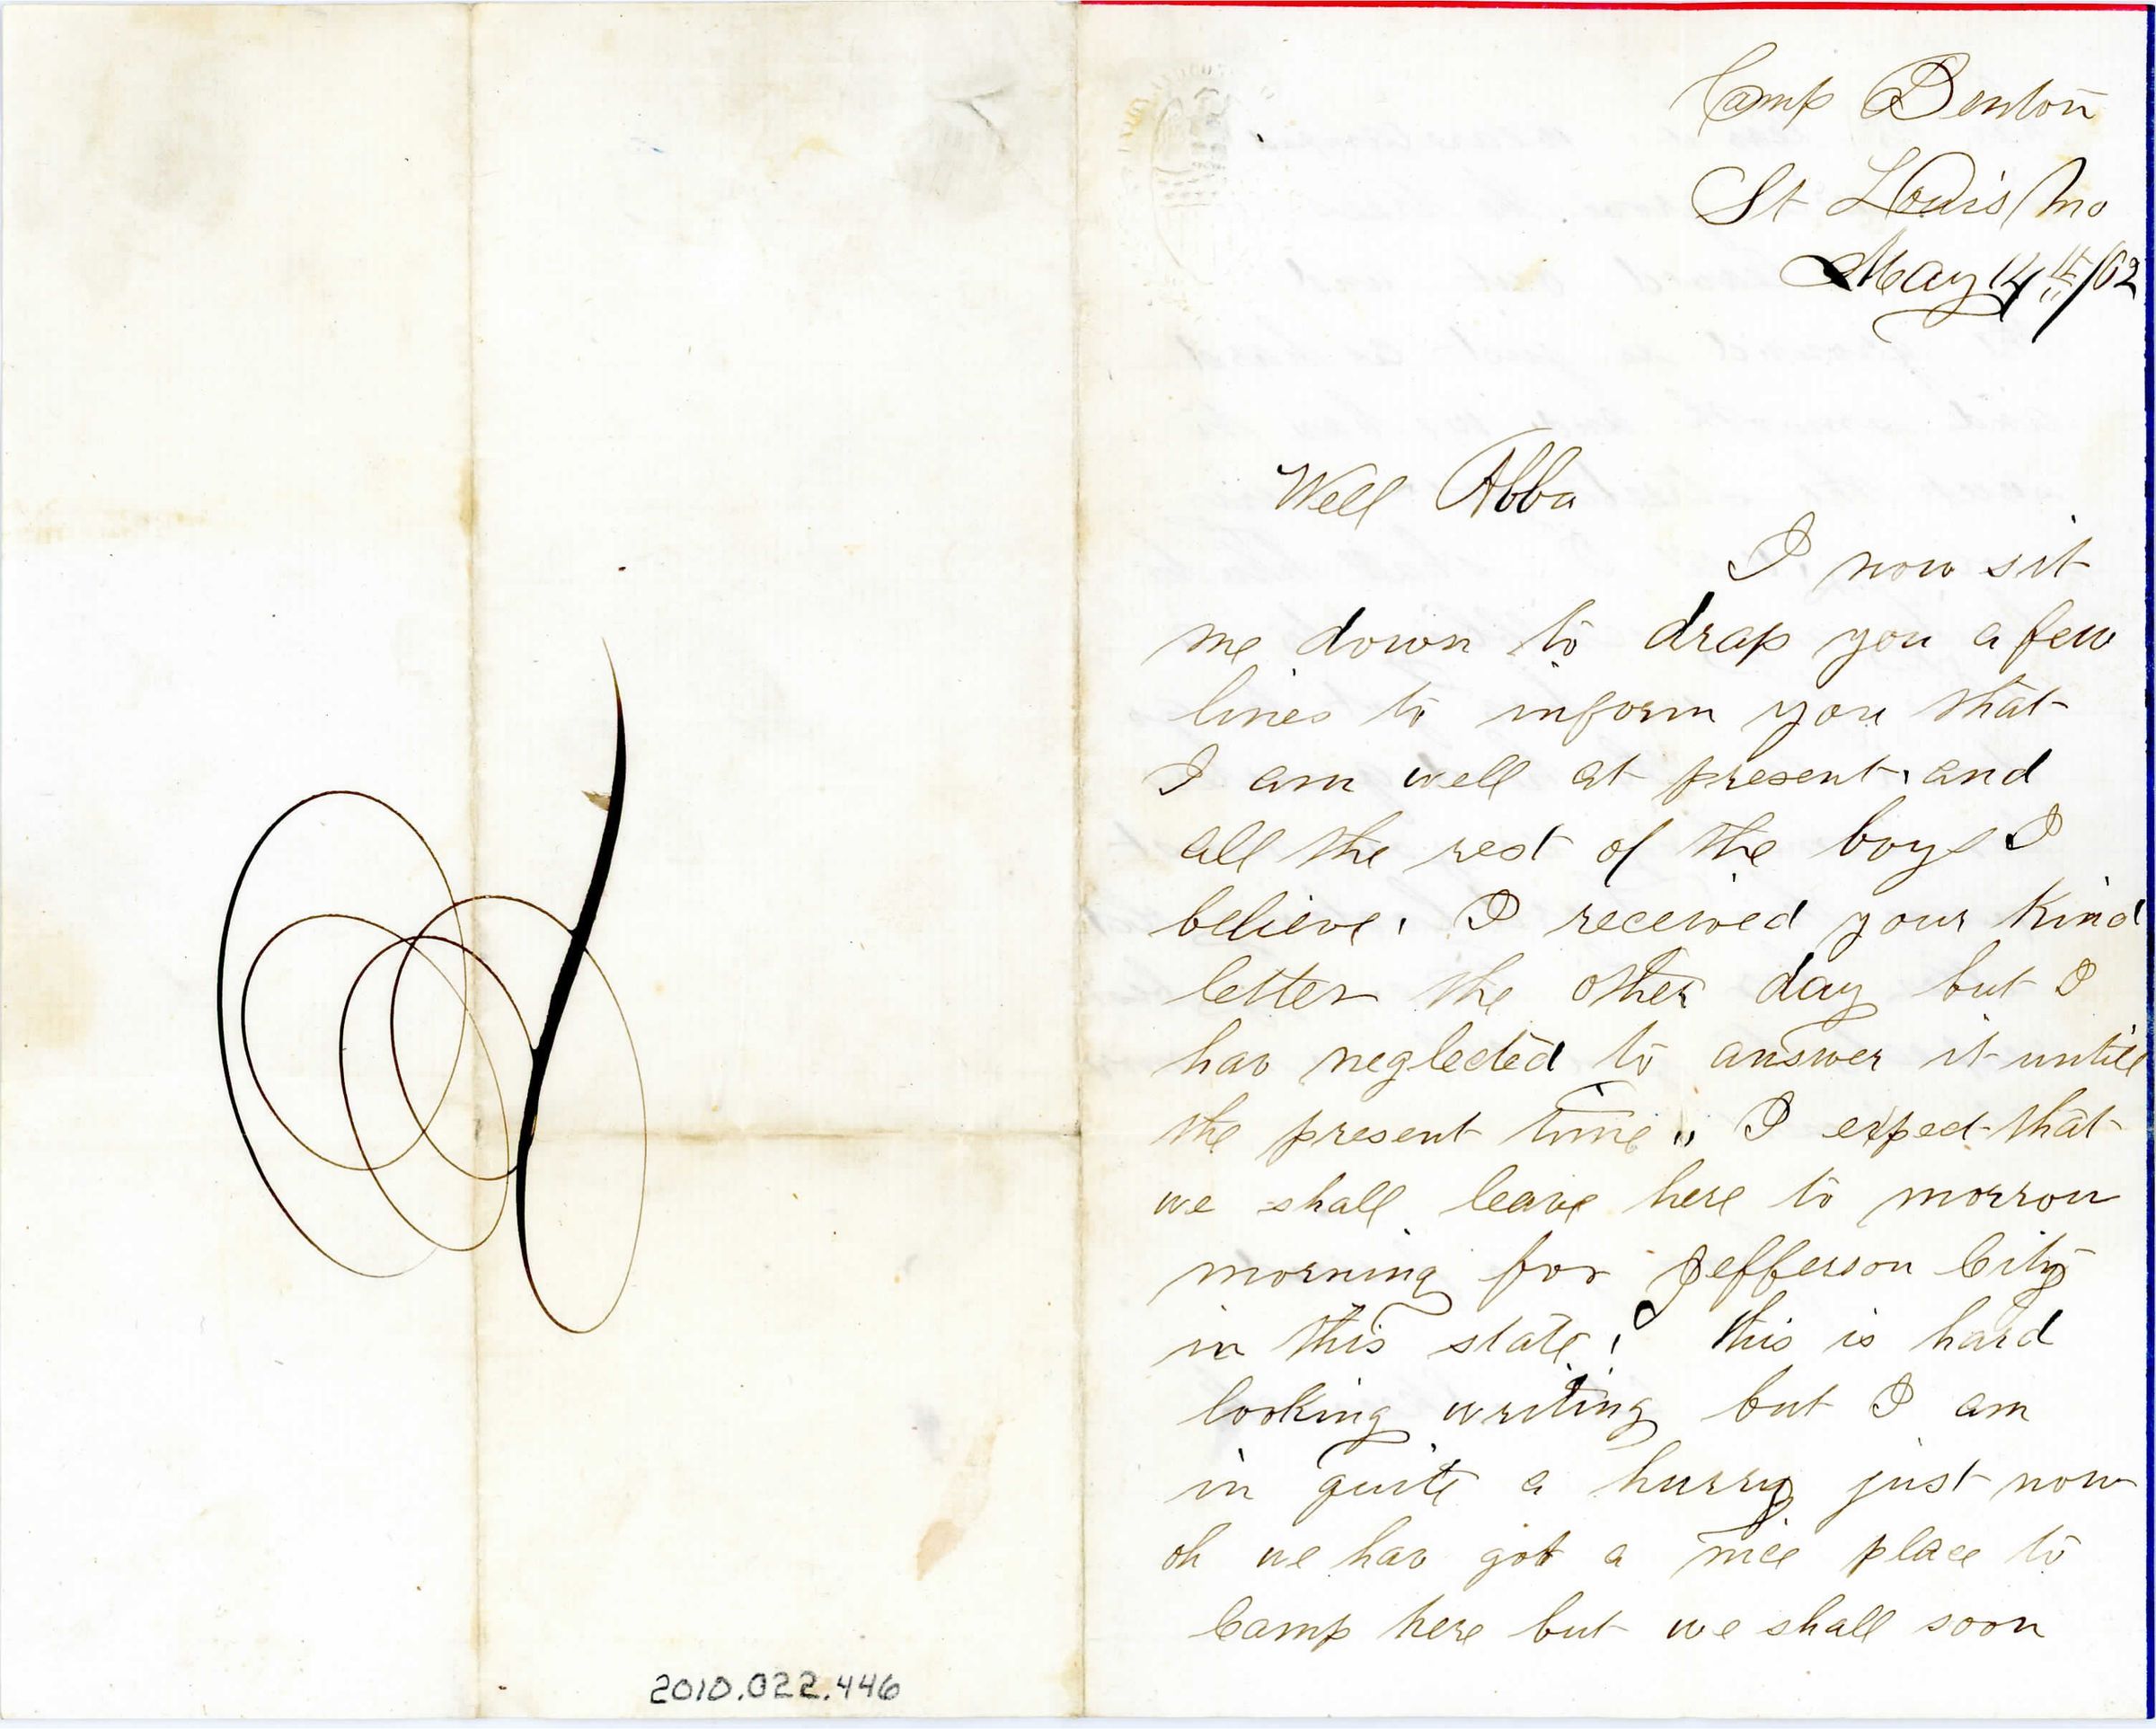 2010.022.446
Camp Benton
St Louis/Mo
May 14th/62
Well Abba
I now sit
me down to drap you a few
lines to inform you that
I am well at present, and
all the rest of the boys I
believe, I received your kind
letter the other day but I
hav neglected to answer it untill
the present time,, I expect that
we shall leave here to morrow
morning for Jefferson City
in this state, this is hard
looking writing but I am
in quite a hurry just now
oh we hav got a nice place to
Camp here but we shall soon